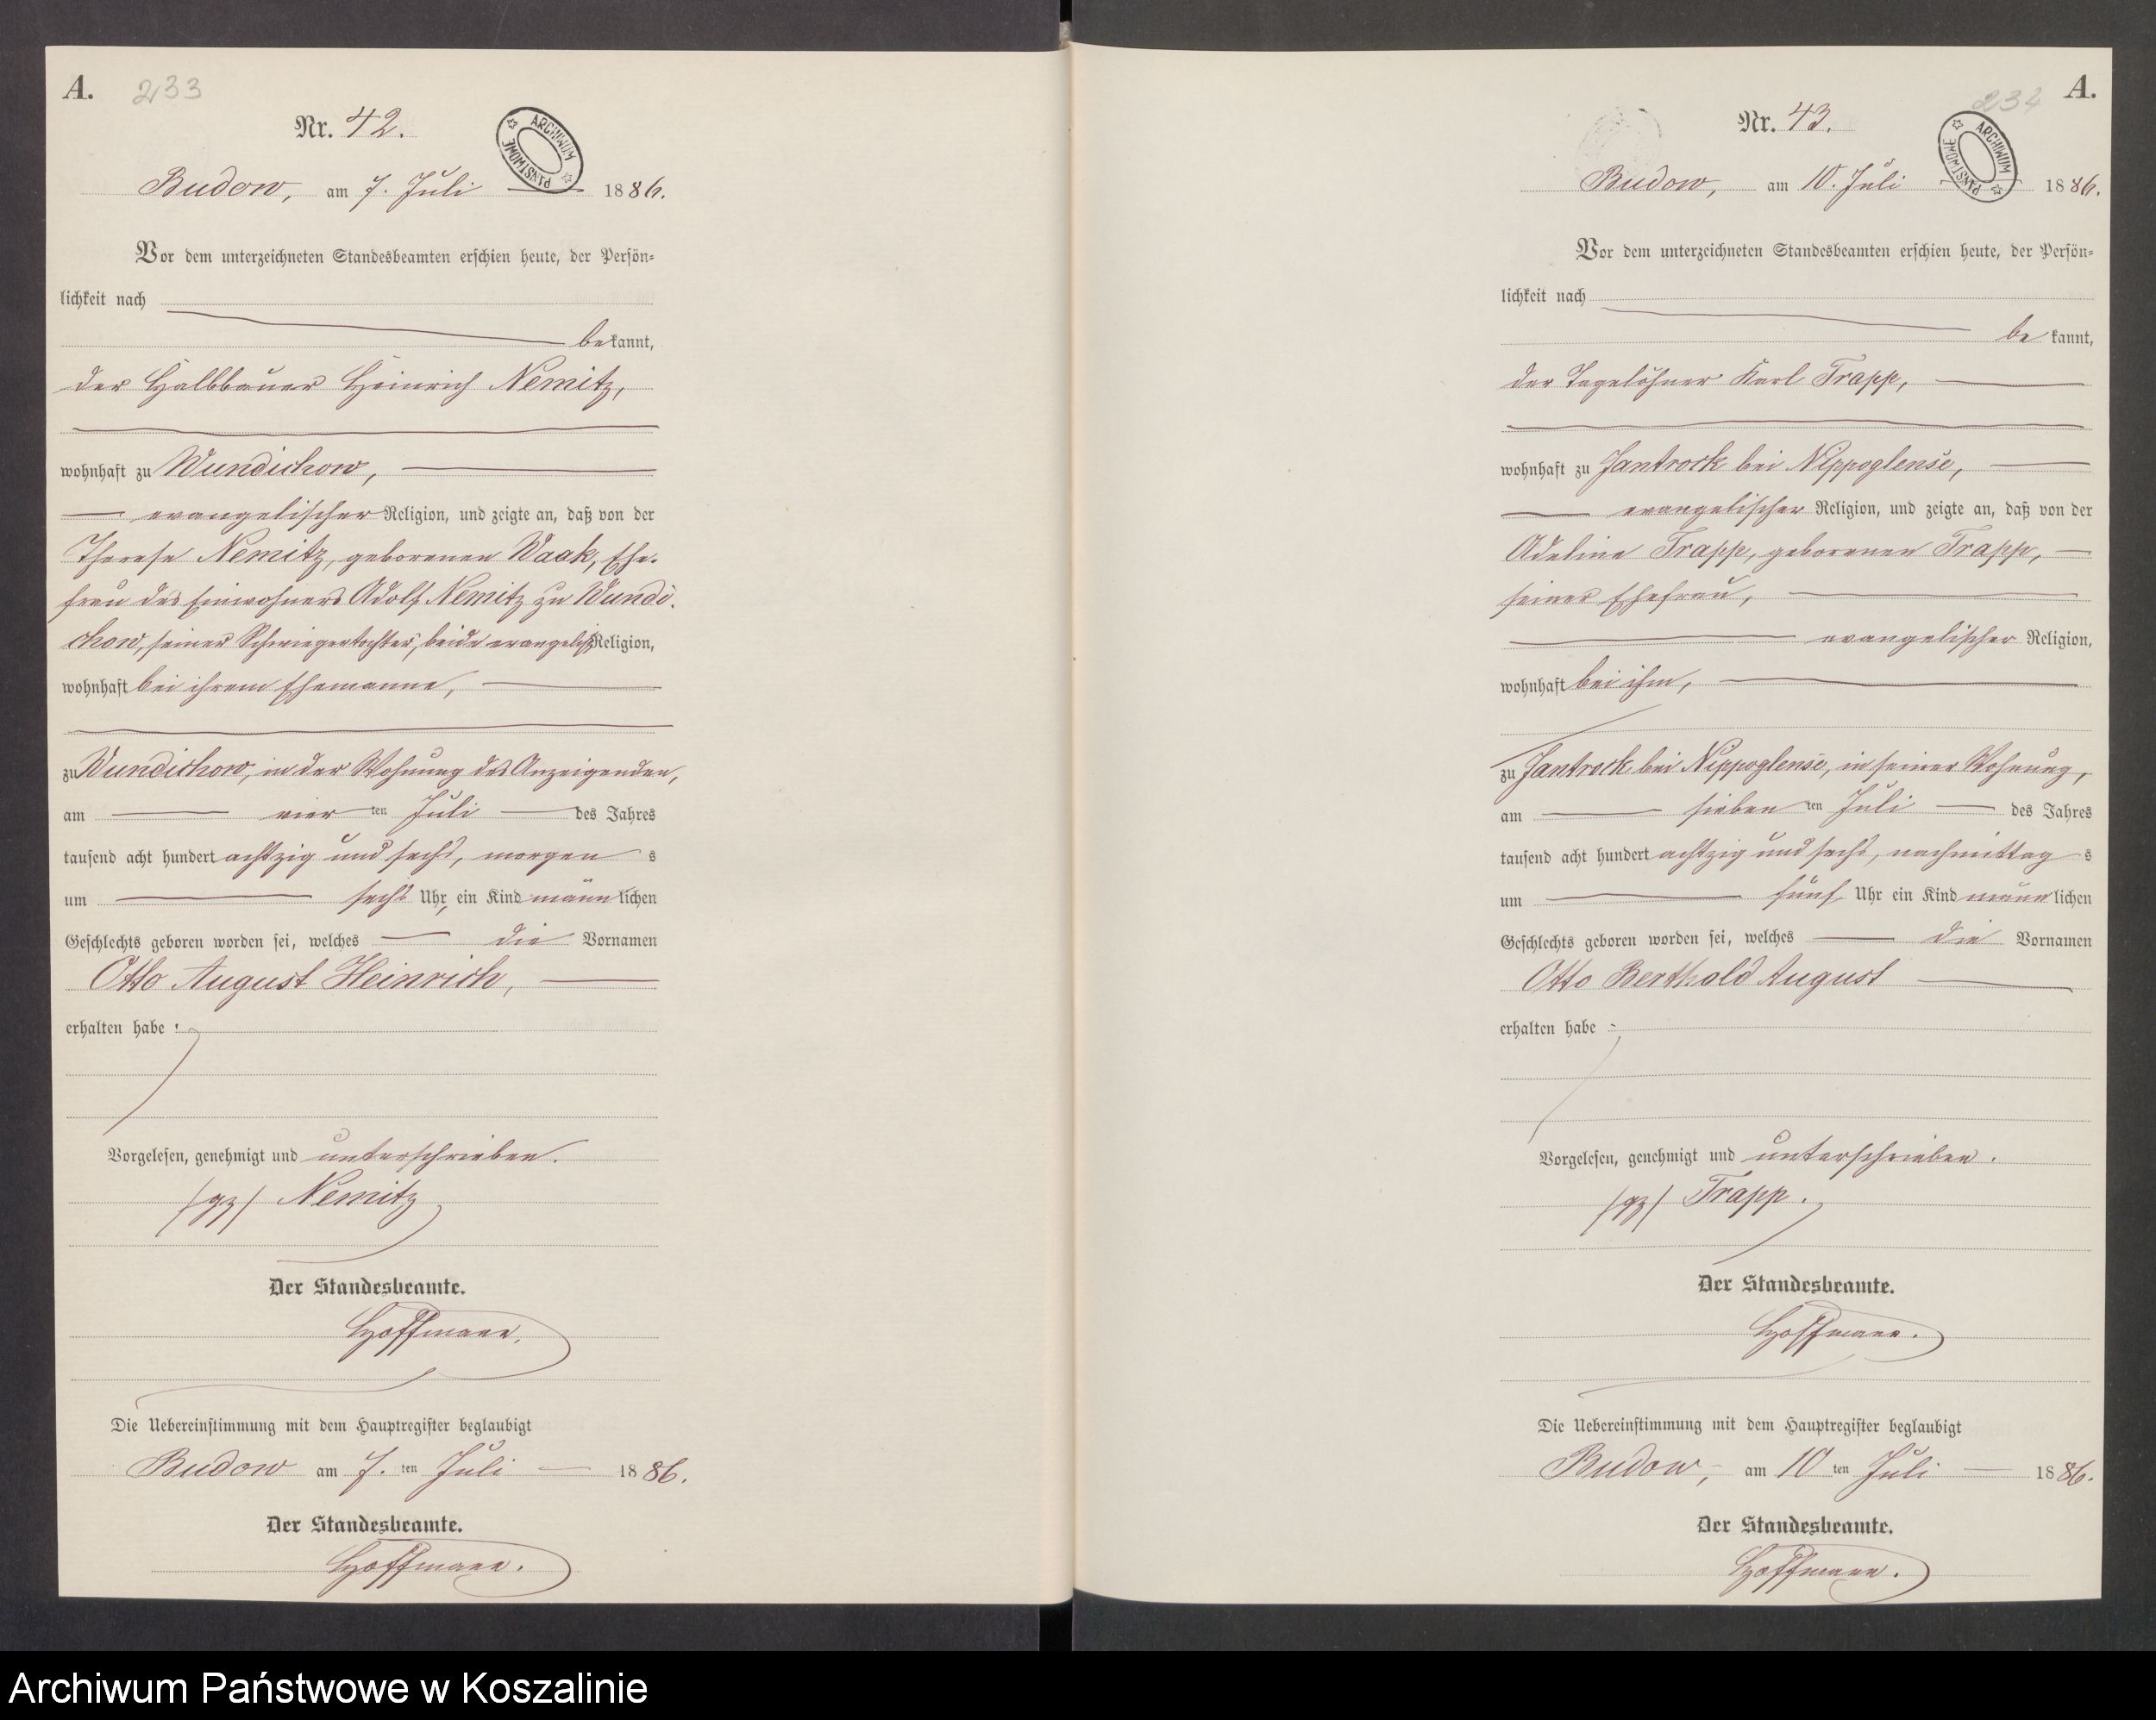 A. 233
Nr. 42.
ARCHIWUM PAŃSTWOWE
Budow, am 7. Juli 1886.
Vor dem unterzeichneten Standesbeamten erschien heute, der Persön-
lichkeit nach
bekannt,
der Halbbauer Heinrich Nemitz,
wohnhaft zu Wundichow,
evangelischer Religion, und zeigte an, daß von der
Therese Nemitz, geborenen Waak, Ehe-
frau des Einwohners Adolf Nemitz zu Wundi-
chow, seiner Schwiegertochter, beide evangelisch Religion,
wohnhaft bei ihrem Ehemanne,
zu Wundichow, in der Wohnung des Anzeigenden,
am vier ten Juli des Jahres
tausend acht hundert achtzig und sechs, morgen s
um sechs Uhr, ein Kind männlichen
Geschlechts geboren worden sei, welches die Vornamen
Otto August Heinrich,
erhalten habe.
Vorgelesen, genehmigt und unterschrieben.
/gz/ Nemitz
Der Standesbeamte.
Hoffmann.
Die Uebereinstimmung mit dem Hauptregister beglaubigt
Budow am 7. ten Juli 1886.
Der Standesbeamte.
Hoffmann.
234 A.
Nr. 43.
ARCHIWUM PAŃSTWOWE
Budow, am 10. Juli 1886.
Vor dem unterzeichneten Standesbeamten erschien heute, der Persön-
lichkeit nach
be kannt,
der Tagelöhner Karl Trapp,
wohnhaft zu Jantrock bei Nippoglense,
evangelischer Religion, und zeigte an, daß von der
Adeline Trapp, geborenen Trapp,
seiner Ehefrau,
evangelischer Religion,
wohnhaft bei ihm,
zu Jantrock bei Nippoglense, in seiner Wohnung,
am sieben ten Juli des Jahres
tausend acht hundert achtzig und sechs, nachmittag s
um fünf Uhr ein Kind männlichen
Geschlechts geboren worden sei, welches die Vornamen
Otto Berthold August
erhalten habe
Vorgelesen, genehmigt und unterschrieben.
/gz/ Trapp.
Der Standesbeamte.
Hoffmann.
Die Uebereinstimmung mit dem Hauptregister beglaubigt
Budow, am 10 ten Juli 1886.
Der Standesbeamte.
Hoffmann.
Archiwum Państwowe w Koszalinie